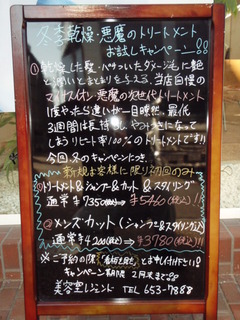 冬季乾燥・悪魔のトリートメント
お試しキャンペーン!!
①乾燥した髪・パサついたダメージ毛に艶
と潤いとまとまりを与える、当店自慢の
悪魔の次世代トリートメント
1度やったら違いが一目瞭然、最低
3週間は長持ちし、やみつきになって
しまうリピート率100%のトリートメントです!!
今回、冬のキャンペーンにつき、
新規お客様に限り初回のみ
①トリートメント&シャンプー&カット&スタイリング
通常¥7350(税込)→¥5460(税込)!!
②メンズカット(シャンプー&スタイリング込)
通常¥4200(税込)→¥3780(税込)!!!
※ご予約の際「看板を見た」とお伝え下さい!!
キャンペーン期限 2月末まで
美容室レジェンド TEL 653-7888